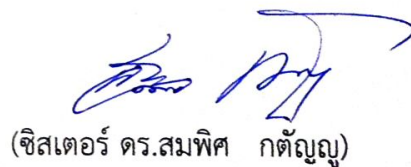 (ซิสเตอร์ ดร.สมพิศ กตัญญู)